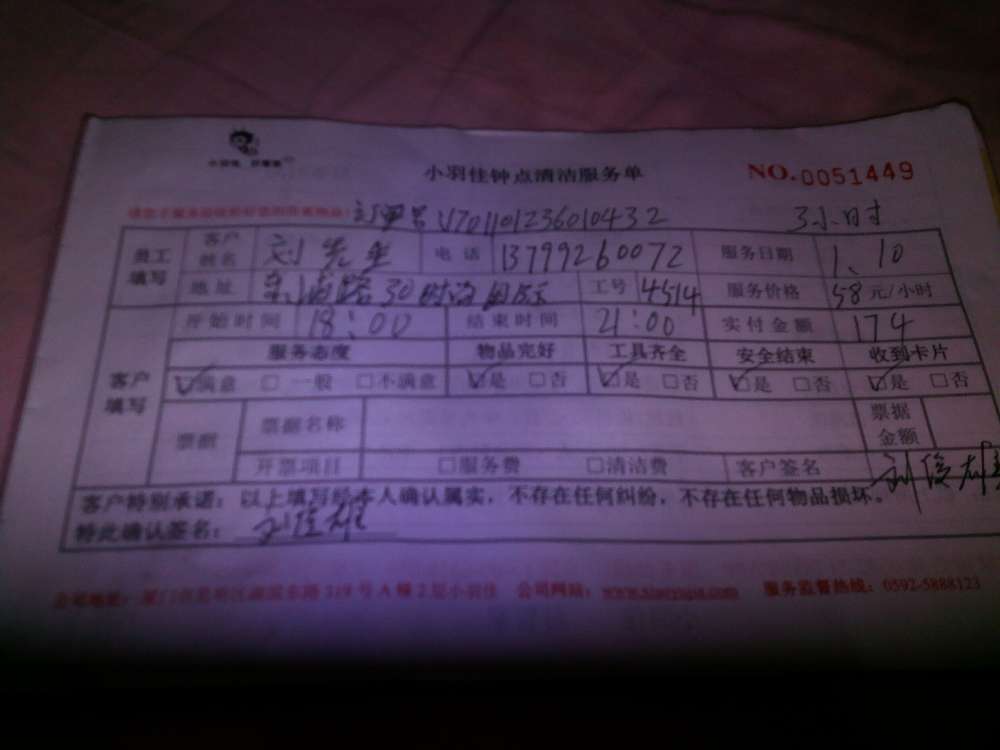 小羽佳钟点清洁服务单
NO.0051449
订单号V701101236010432 3小时
员工填写 客户姓名 刘先生 电话 13799260072 服务日期 1.10
地址 30 工号 4514 服务价格 58元/小时
客户填写 开始时间 18:00 结束时间 21:00 实付金额 174
服务态度 物品完好 工具齐全 安全结束 收到卡片
☑满意 □一般 □不满意 ☑是 □否 ☑是 □否 ☑是 □否 ☑是 □否
票据 票据名称 票据金额
开票项目 □服务费 □清洁费 客户签名 刘俊雄
客户特别承诺:以上填写经本人确认属实,不存在任何纠纷,不存在任何物品损坏。
特此确认签名:刘俊雄
公司地址:厦门市思明区湖滨东路319号A幢2层小羽佳 公司网站: 服务监督热线:0592-5888123